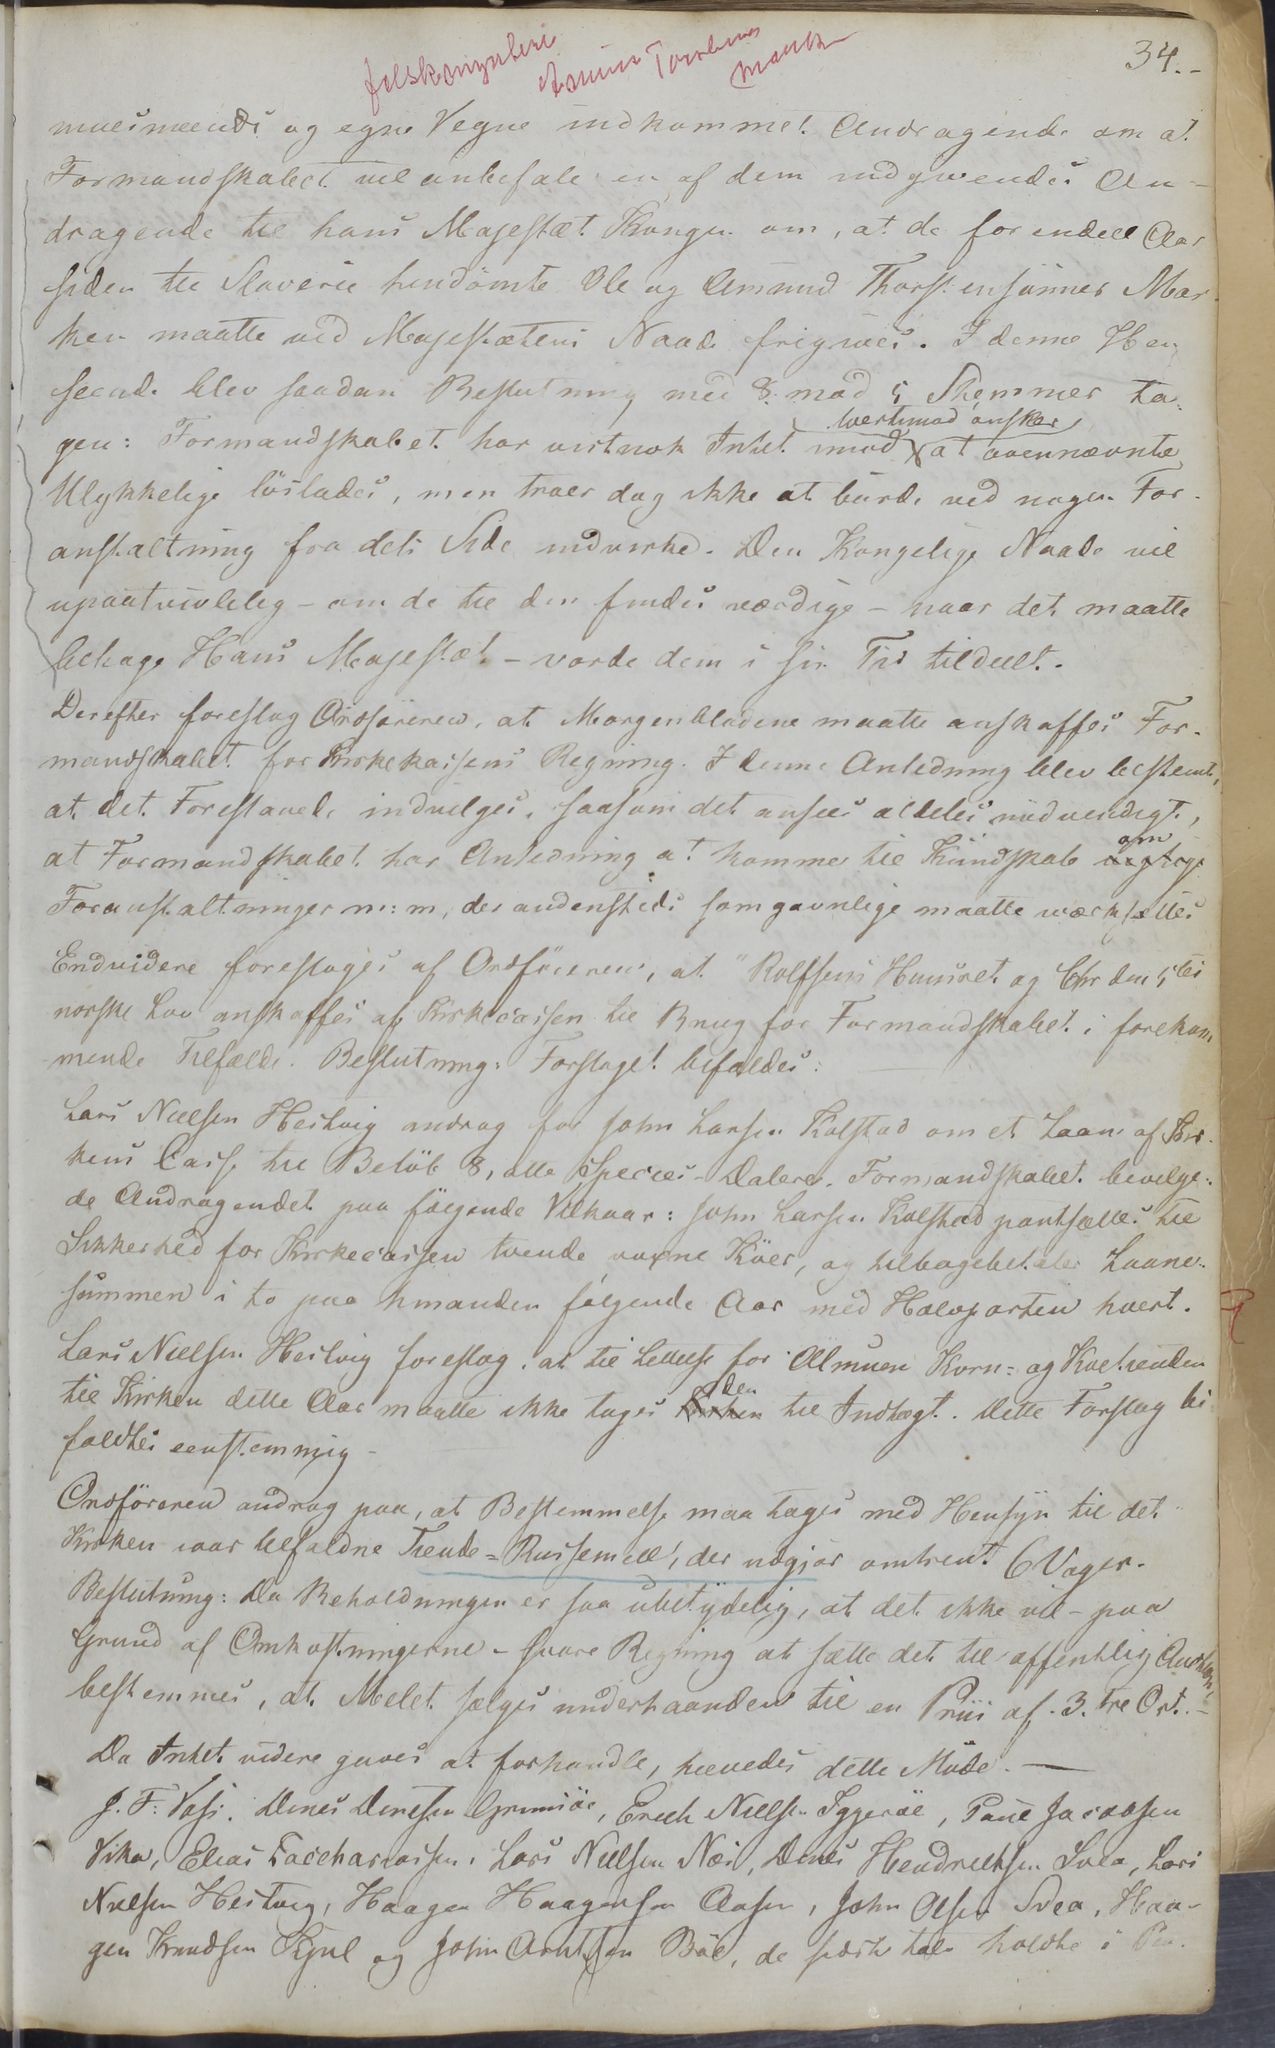 34.-
falskmynteri
Amund Torstens
Marken
muesmeends og egne Vegne indkommet Andragende om at
Formandskabet vil anbefale en af dem indgivendes An-
dragende til hans Majestæt Kongen om, at de for endeel Aar
siden til Slaverie hendömte Ole og Amund Thorstensönner Mar-
ken maatte ved Majestætens Naade frigives. I denne Hen-
seende blev saadan Beslutning med 8 mod 5 Stemmer ta-
gen: Formandskabet har vistnok Intet imod, tvertimod önsker at ovennævnte
Ulykkelige löslades, men troer dog ikke at burde ved nogen For-
anstaltning fra dets Side indvirke. Den Kongelige Naade vil
upaatvivlelig - om de til den findes værdige - naar det maatte
behage Hans Majestæt - vorde dem i sin Tid tildeelt.
Derefter foreslog Ordföreren, at Morgenbladene maatte anskaffes For-
mandskabet for Kirkekassens Regning. I denne Anledning blev bestemt,
at det Foreslaaede indvilges, saasom det ansees aldeles nödvendigt,
at Formandskabet har Anledning at komme til Kundskab om
Foranstaltninger m: m, der andensteds som gavnlige maatte værksættes
Endvidere foresloges af Ordföreren, at "Rolfsens Huusret og Chr den 5tes
norske Lov anskaffes af Kirkecassen til Brug for Formandskabet i forekom-
mende Tilfælde. Beslutning: Forslaget bifaldes:
Lars Nielsen Hestvig androg for John Larsen Kolstad om et Laan af Kir-
kens Casse til Belöb 8, otte Species-Daler. Formandskabet bevilge-
de Andragendet paa fölgende Vilkaar: John Larsen Kolstad pantsætter til
Sikkerhed for Kirkecassen tvende voxne Köer, og tilbagebetaler Laane-
summen i to paa hinanden fölgende Aar med Halvparten hvert.
Lars Nielsen Hestvig foreslog, at til Lettelse for Almuen Korn- og Kvetienden
til Kirken dette Aar maatte ikke tages den til Indtægt. Dette Forslag bi-
faldtes eenstemmig -
Ordföreren androg paa, at Bestemmelse maa tages med Hensyn til det
Kirken iaar tilfaldne Tiende-Russemeel, der udgjör omtrent 6 Voger.
Beslutning: Da Beholdningen er saa ubetydelig, at det ikke vil - paa
Grund af Omkostningerne - svare Regning at sætte det til offentlig Auction,
bestemmes, at Melet sælges underhaanden til en Priis af 3. tre Ort. -
Da Intet videre gaves at forhandle, hævedes dette Möde. —
J. F. Voss. Dines Dinesen Gremsöe, Erich Nielsen Iggeröe, Paul Jacobsen
Vika, Elias Zachariassen, Lars Nielsen Næs, Dines Hendrichsen Svea, Lars
Nielsen Hestvig, Haagen Haagensen Aasen, John Olsen Svea, Haa-
gen Knudsen Kjul og John Arntsen Böe, de sidste tale holdte i Pen.